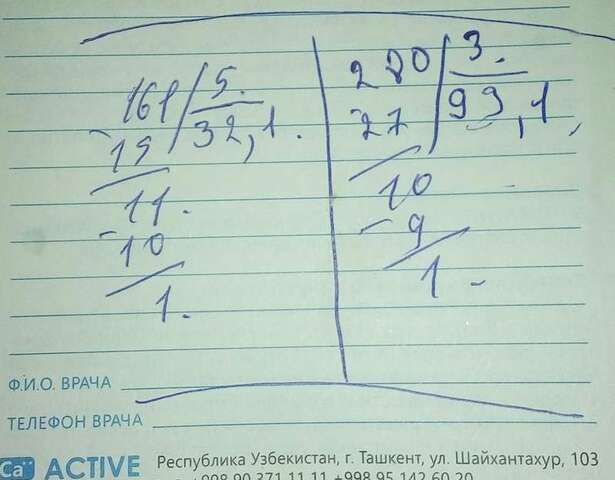 161 5.
15 32,1.
11.
10
1.
280 3.
27 93,1,
10
9
1
Ф.И.О. ВРАЧА
ТЕЛЕФОН ВРАЧА
Ca ACTIVE Республика Узбекистан, г. Ташкент, ул. Шайхантахур, 103